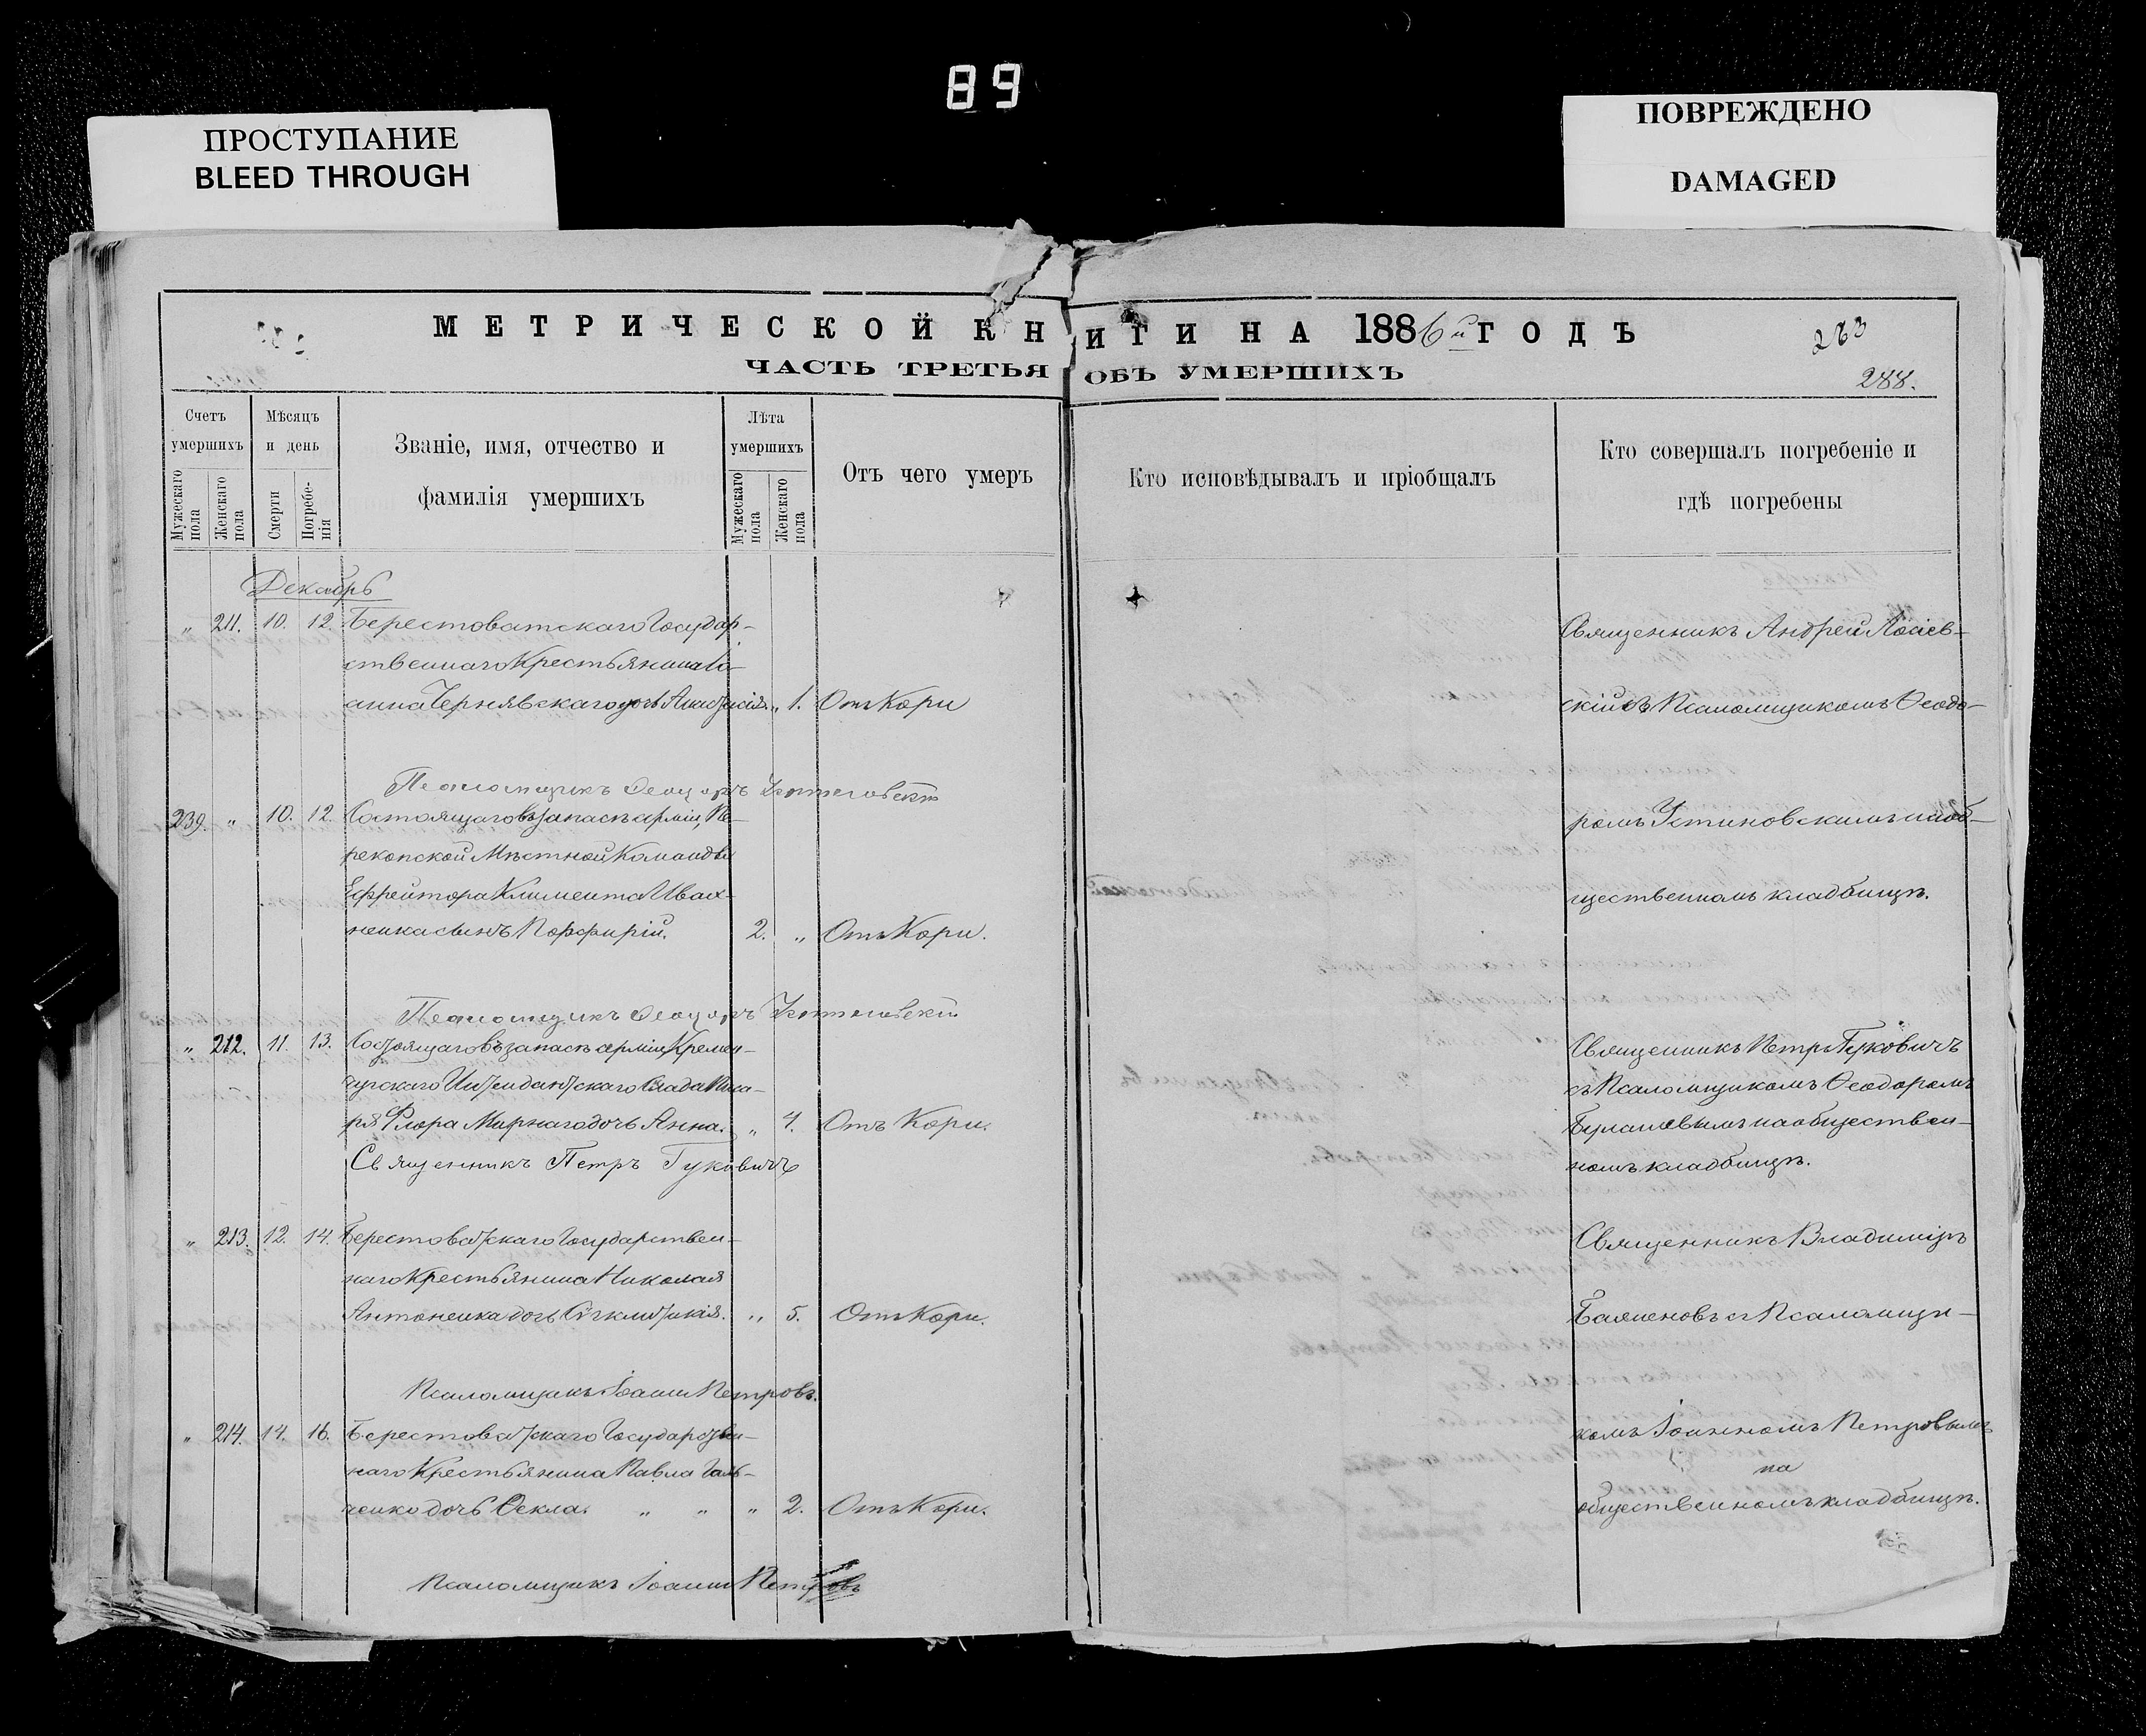 89
ПРОСТУПАНИЕ
BLEED THROUGH
ПОВРЕЖДЕНО
DAMAGED
МЕТРИЧЕСКОЙ КНИГИ НА 1886й ГОДЪ
283
ЧАСТЬ ТРЕТЬЯ ОБЪ УМЕРШИХЪ
288.
Счетъ умершихъ
Мужескаго пола
Женскаго пола
Мѣсяцъ и день
Смерти
Погребенія
Званіе, имя, отчество и
фамилія умершихъ
Лѣта умершихъ
Мужескаго пола
Женскаго пола
Отъ чего умеръ
Кто исповѣдывалъ и пріобщалъ
Кто совершалъ погребеніе и
гдѣ погребены
Декабрь
„ 211. 10. 12. Берестоватскаго Государ-
ственнаго Крестьянина Іо-
анна Чернявскаго дочь Анастасія. „ 1. Отъ Кори
Священникъ Андрей
скій съ Псаломщикомъ Ѳеодо-
Псаломщикъ Ѳеодоръ Устиновскій
239. „ 10. 12. Состоящаго въ запасѣ арміи, Пе-
рекопской Мѣстной Команды
Ефрейтора Климента Ивах-
ненка сынъ Порфирій. 2. „ Отъ Кори.
ромъ Устиновскимъ на об-
щественномъ кладбищѣ.
Псаломщикъ Ѳеодоръ Устиновскій
„ 212. 11. 13. Состоящаго въ запасѣ арміи, Кремен-
чугскаго Интендантскаго Склада Писа-
ря Флора Мирнаго дочь Анна. „ 4. Отъ Кори.
Священникъ Петръ Гуковичъ
Священникъ Петръ Гуковичъ
съ Псаломщикомъ Ѳеодоромъ
на обществен-
номъ кладбищѣ.
„ 213. 12. 14. Берестоватскаго Государствен-
наго Крестьянина Николая
Антоненка дочь „ 5. Отъ Кори.
Священникъ Владиміръ
Баяненовъ съ Псаломщи-
Псаломщикъ Іоаннъ Петровъ.
„ 214. 14. 16. Берестоватскаго Государствен-
наго Крестьянина Павла Галь-
ченко дочь Ѳекла. „ „ „ 2. Отъ Кори.
комъ Іоанномъ Петровымъ
на
общественномъ кладбищѣ.
Псаломщикъ Іоаннъ Петровъ